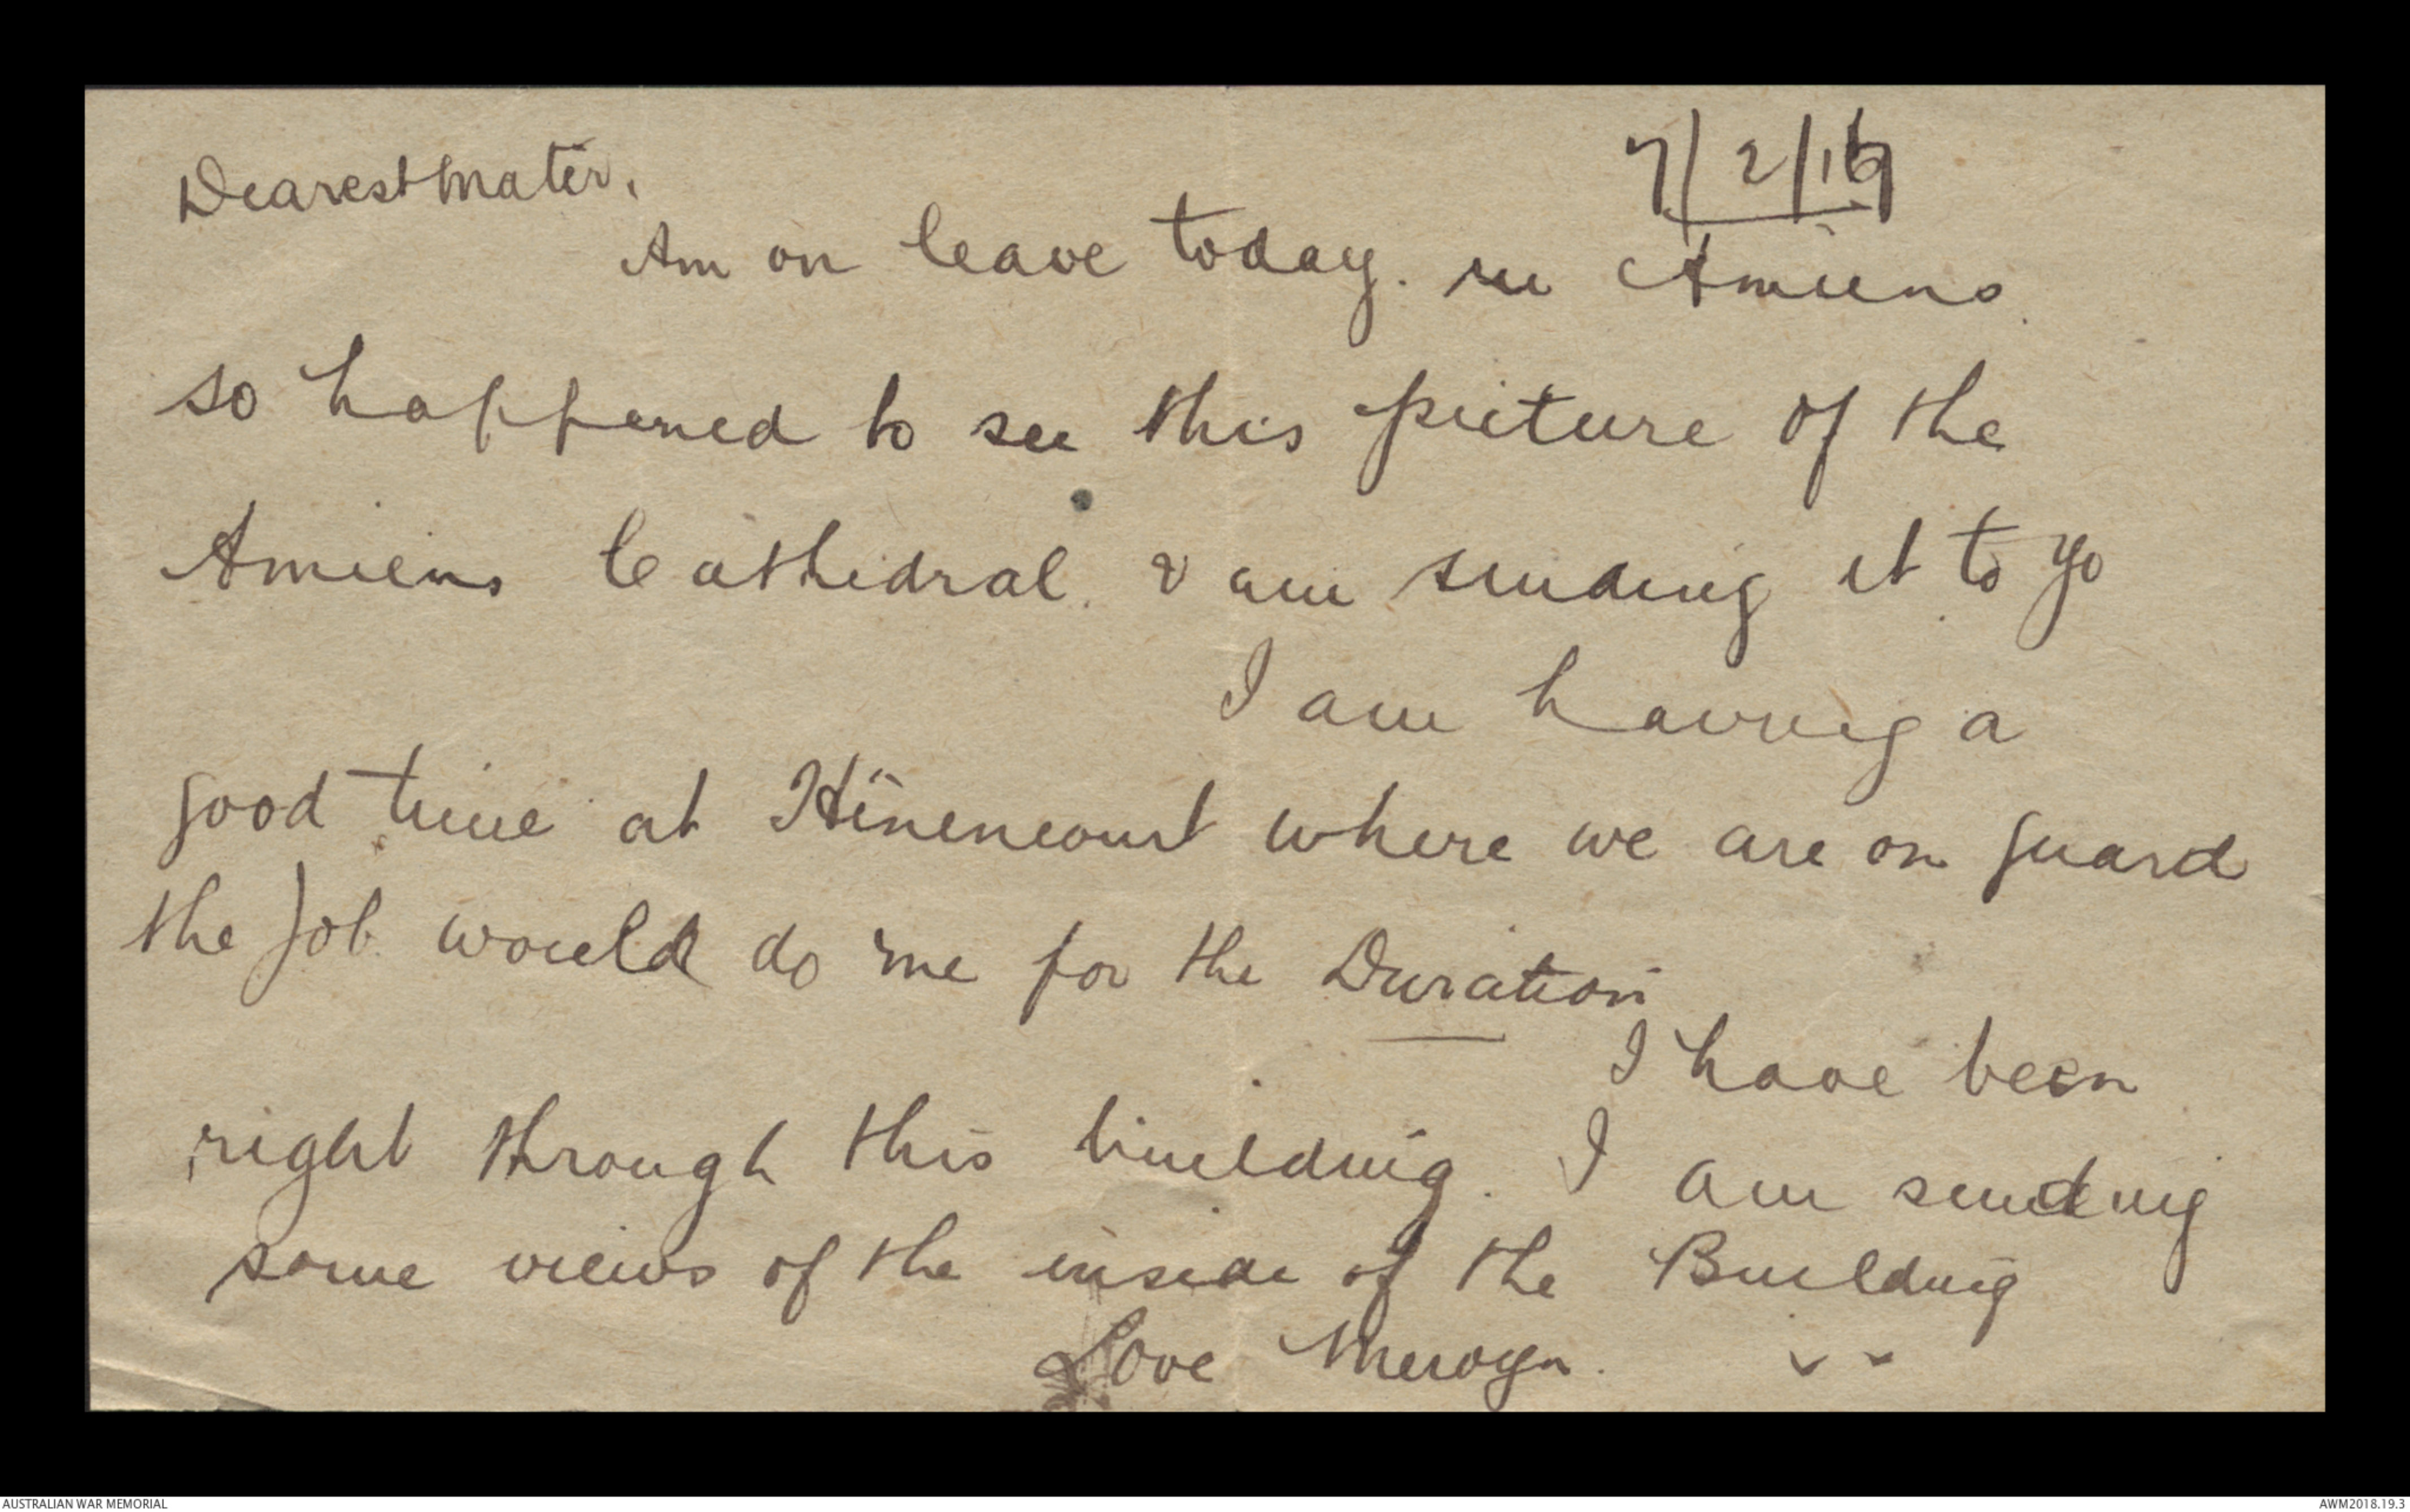 7/2/17
Dearest Mater,
Am on leave today. in Amiens
so happened to see this picture of the
Amiens Cathedral. & am sending it to yo
I am having a
good time at Hénencourt where we are on guard
the job would do me for the Duration
I have been
right through this building. I am sending
some views of the inside of the Building
Love Mervyn.
AUSTRALIAN WAR MEMORIAL
AWM2018.19.3